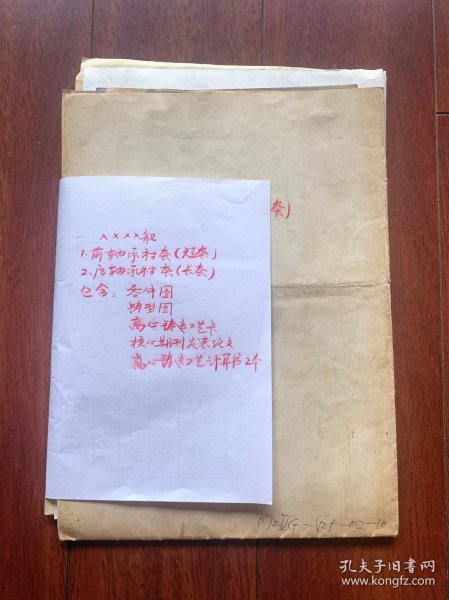 一 ××××船
1.前轴承衬套(短套)
2.后轴承衬套(长套)
包含: 零件图
铸型图
离心铸造工艺卡
核心期刊发表论文
离心铸造工艺计算书2本
套)
孔夫子旧书网
www.kongfz.com